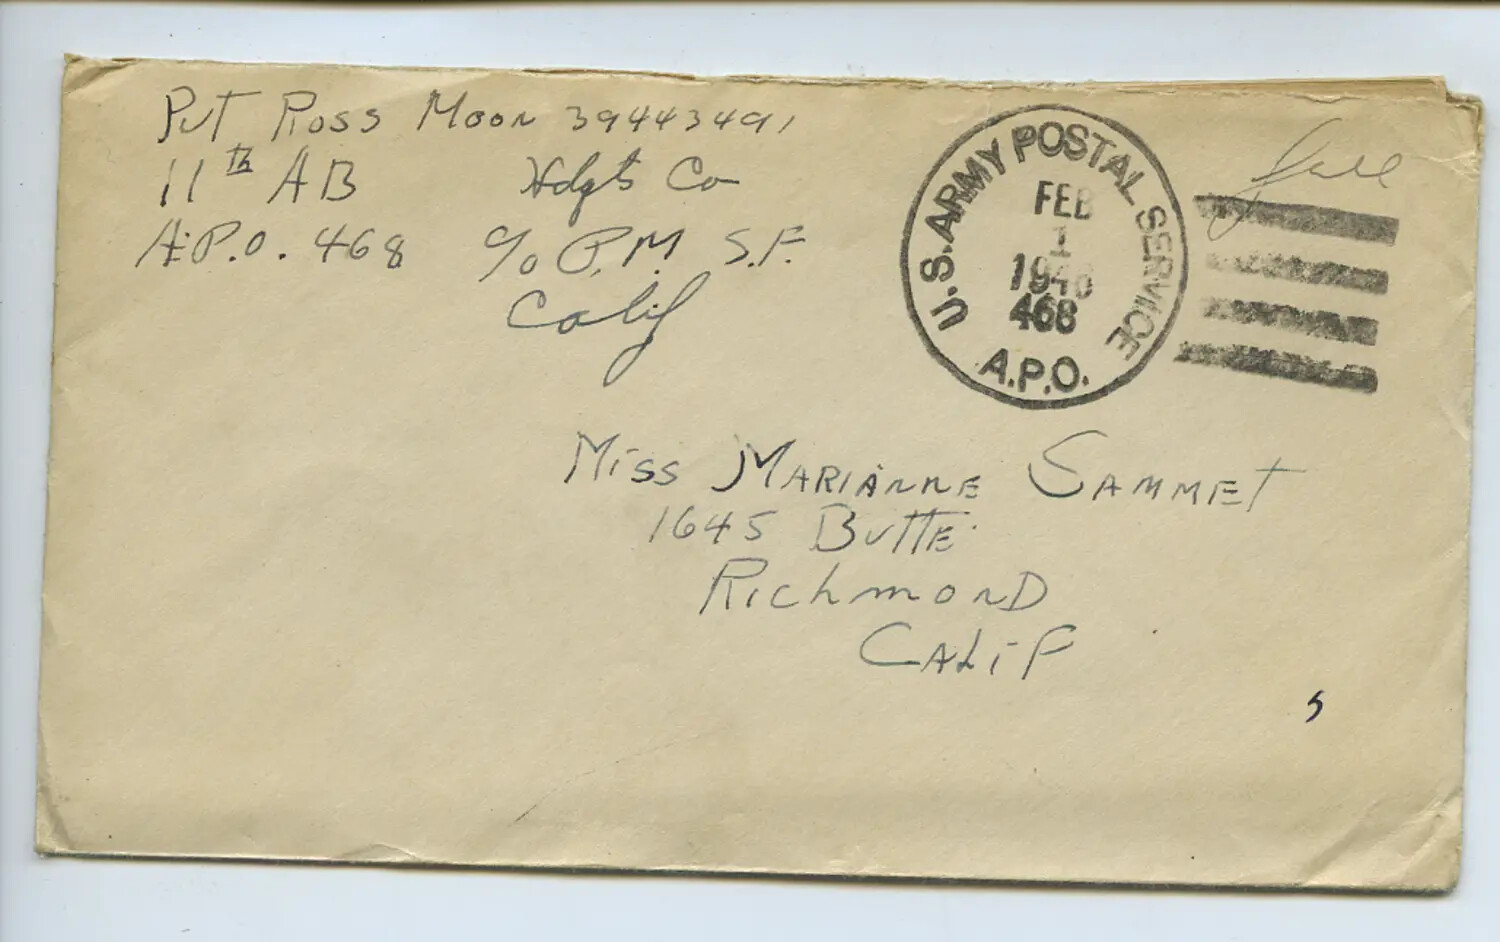 Pvt Ross Moon 39443491
11th AB Hdqts Co
A.P.O. 468 c/o P.M. S.F.
Calif
U.S. ARMY POSTAL SERVICE
FEB
1
1946
468
A.P.O.
Free
Miss Marianne Sammet
1645 Butte
Richmond
Calif
5